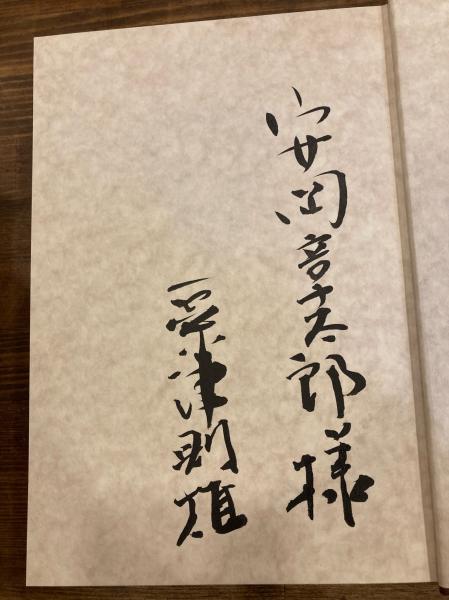 安岡章太郎様
粟津則雄